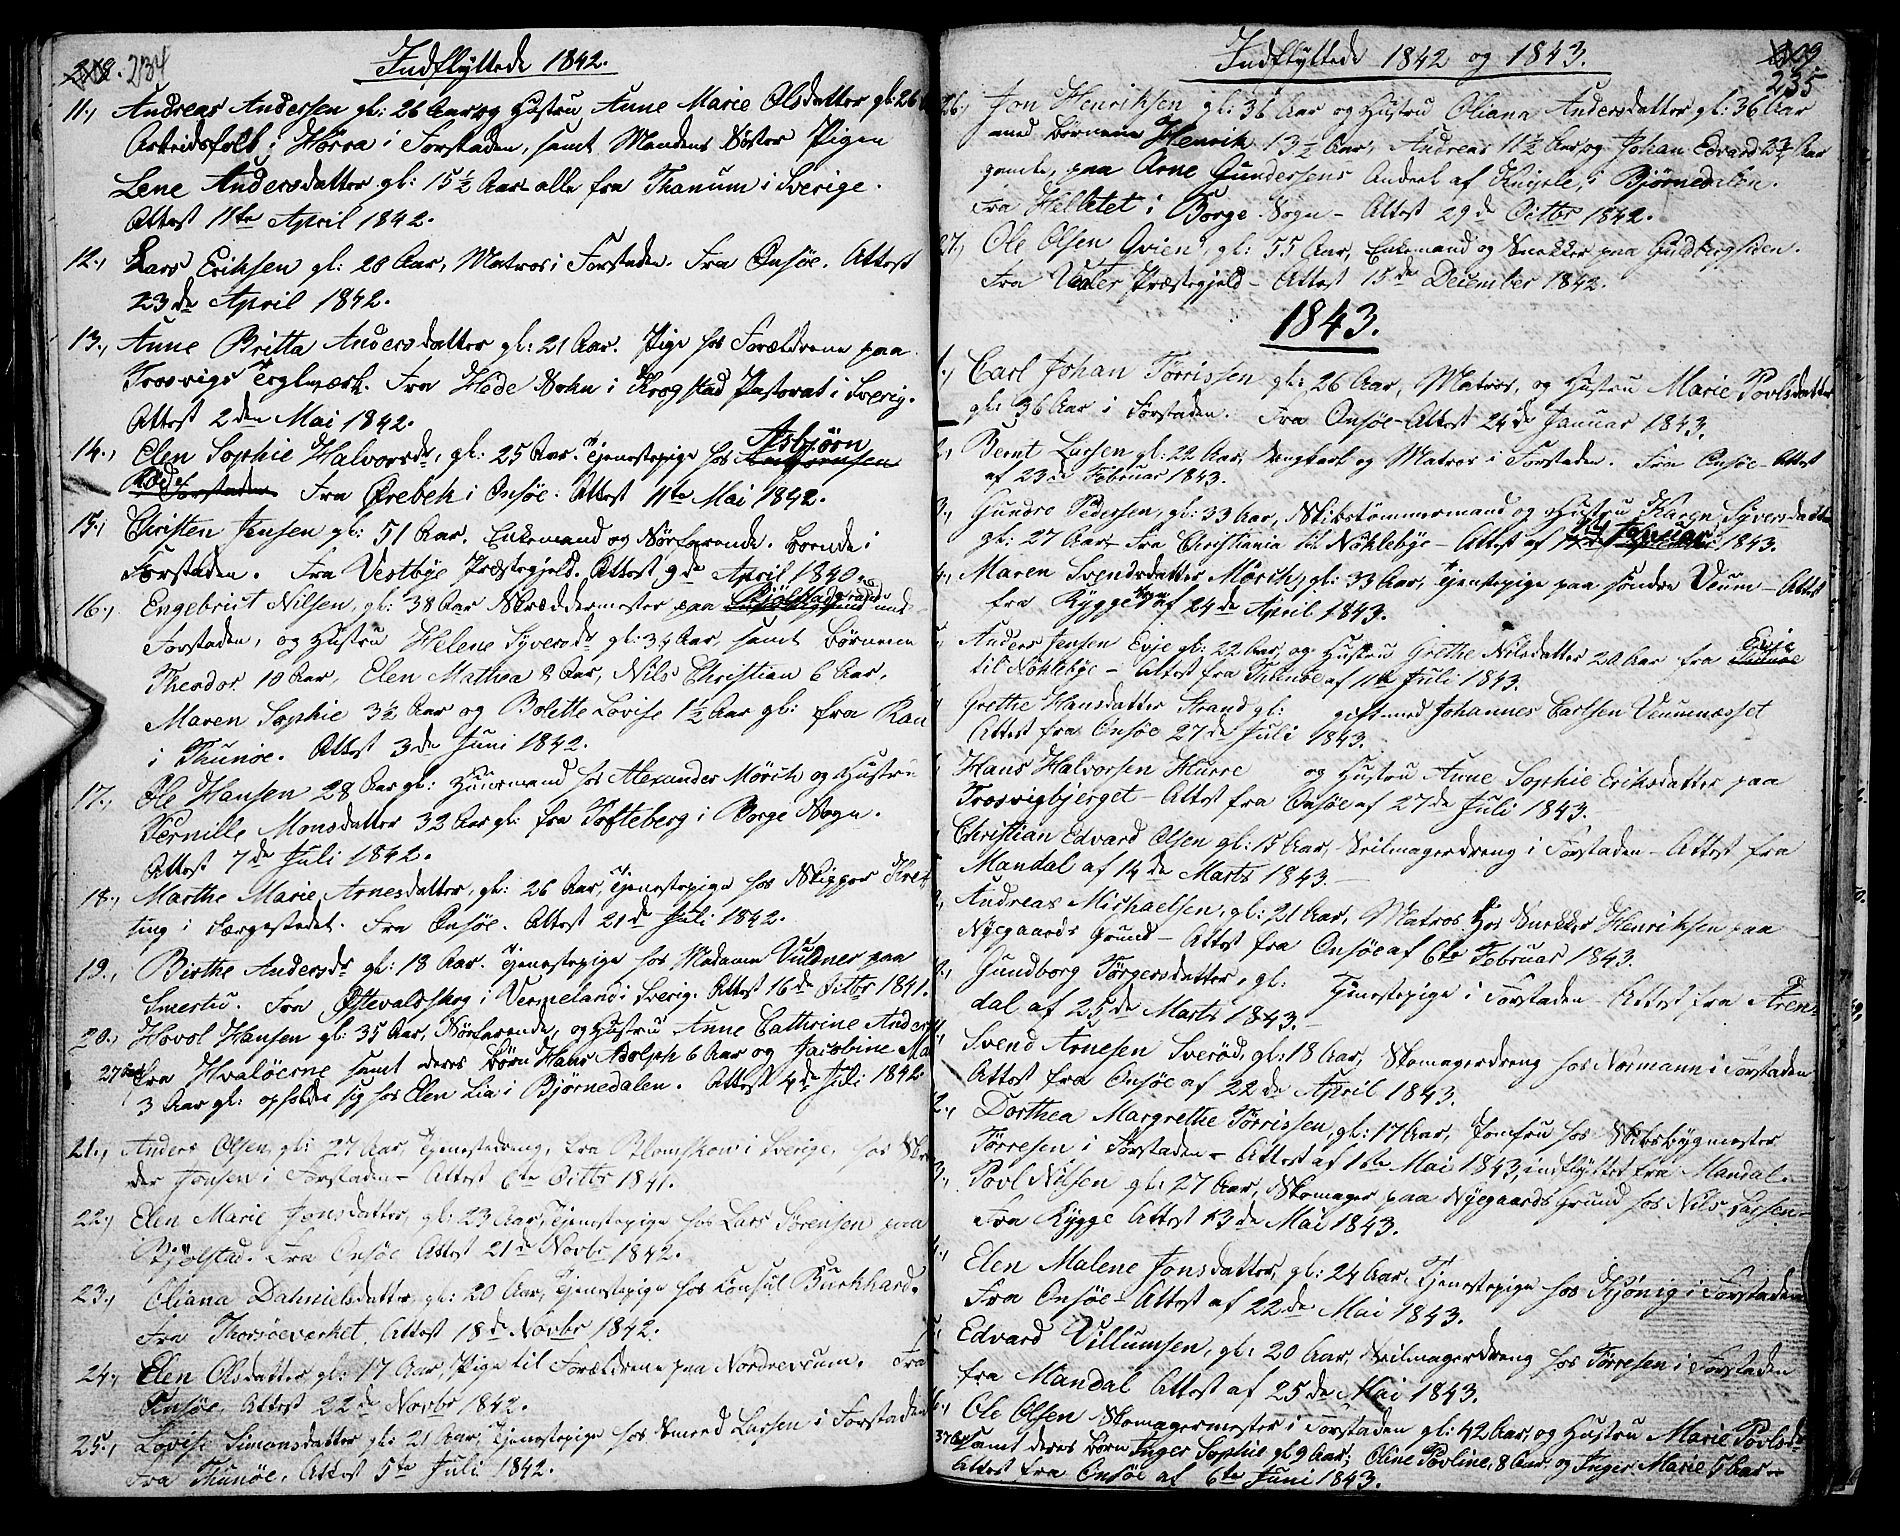 234
Indflyttede 1842.
11., Andreas Andersen gl: 26 Aar og Hustru Anne Marie Olsdatter gl: 26
Arbeidsfolk i Hørra i Forstaden, samt Mandens Søster Pigen
Lene Andersdatter gl: 15½ Aar alle fra Thanum i Sverige.
Attest 11te April 1842.
12., Lars Eriksen gl: 28 Aar, Matros i Forstaden. Fra Onsöe. Attest
23de April 1842.
13., Anne Britta Andersdatter gl: 21 Aar. Pige hos Forældrene paa
Trosvigs Teglværk. Fra Hede Sokn i Krogstad Pastorat i Sverig.
Attest 2den Mai 1842.
14., Elen Sophie Halvorsdr, gl: 25 Aar. Tjenestepige hos Asbjørn
Fra Ørebek i Onsöe. Attest 11te Mai 1842.
15., Christen Jensen gl: 51 Aar. Enkemand og Børfarende. boende i
Forstaden. Fra Vestbye Præstegjeld. Attest 9de April 1840.
16., Engebrict Nilsen, gl: 38 Aar Skræddermester paa Bjølstadgrund
Forstaden, og Hustru Helene Syversdr gl: 34 Aar, samt Børnene
Theodor 10 Aar, Elen Mathea 8 Aar, Nils Christian 6 Aar,
Maren Sophie 3½ Aar og Bolette Lovise 1½ Aar gl: fra Rau
i Thunöe. Attest 3de Juni 1842.
17., Ole Hansen 28 Aar gl: Huusmand hos Alexander Mörch og Hustru
Pernille Monsdatter 32 Aar gl: fra Tofteberg i Borge Sogn.
Attest 7de Juli 1842.
18., Marthe Marie Arnesdatter, gl: 26 Aar, Tjenestepige hos Skipper Kret-
ting i Færgestedet. Fra Onsöe. Attest 21de Juli 1842.
19., Birthe Andersdr gl: 18 Aar. Tjenestepige hos Madame Vuldner paa
Smertu. Fra Østevalskog i Vermeland i Sverig. Attest 16de Octbr 1841.
20., Hovol Hansen gl: 35 Aar, Børfarende, og Hustru Anne Cathrine Anders
27 Aar fra Hvalöerne samt deres Børn Hans Adolph 6 Aar og Jacobine Ma
3 Aar gl: opholde sig hos Elen Lia i Bjørnedalen. Attest 4de Juli 1842
21., Anders Olsen, gl: 27 Aar, Tjenestedreng, fra Blomskow i Sverige, hos
der Jonsen i Forstaden - Attest 6te Octbr 1841.
22., Elen Marie Jonsdatter, gl: 23 Aar, Tjenestepige hos Lars Sørensen paa
Bjølstad. Fra Onsöe Attest 21de Novbr 1842.
23., Oliana Dahnielsdatter, gl: 20 Aar, Tjenestepige hos Consul Burkhard.
Fra Thorsöeverket. Attest 18de Novbr 1842.
24., Elen Olsdatter gl: 17 Aar, Pige til Forældrene paa Nordreveum. Fra
Onsöe, Attest 22de Novbr 1842.
25., Lovise Simonsdatter gl: 21 Aar, Tjenestepige hos Smed Lassen i Forstaden
Fra Thunöe, Attest 5te Juli 1842.
235
Indflyttede 1842 og 1843.
26., Jon Henriksen gl: 36 Aar og Hustru Oliana Andersdatter gl: 36 Aar
med Børnene Henrik 13½ Aar, Andreas 11½ Aar, og Johan Edvard 2¾ Aar
gamle, paa Arne Gundersens Andeel af Enysle, i Bjørnedalen.
Fra Helletet i Borge Sogn - Attest 29de Octbr 1842.
27., Ole Olsen Qvien, gl: 55 Aar, Enkemand og Snekker paa Guldbergsiden.
Fra Vaaler Præstegjeld - Attest 15de December 1842.
1843.
1., Carl Johan Törrissen gl: 26 Aar, Matros, og Hustru Marie Povlsdatter
gl: 36 Aar i Forstaden. Fra Onsöe - Attest 24de Januar 1843.
2., Bernt Lassen gl: 22 Aar, Ungkarl og Matros i Forstaden. Fra Onsöe Attest
af 23de Februar 1843.
3., Gundro Pedersen, gl: 33 Aar, Skibstömmermand og Hustru Karen Syversdatter
gl: 27 Aar. Fra Christiania til Nöklebye - Attest af Januar 1843.
4., Maren Svendsdatter Mörch, gl: 33 Aar, Tjenestepige paa Søndre Veum - Attest
fra Rygge Sogn af 24de April 1843.
Anders Jensen Evje gl: 22 Aar, og Hustru Grethe Nilsdatter 20 Aar fra Evje
til Nöklebye - Attest fra Thunöe af 11te Juli 1843.
Grethe Hansdatter Strand gl: gift med Johannes Carlsen Veumnæsset
Attest fra Onsöe 27de Juli 1843.
Hans Halvorsen Hurre og Hustru Anne Sophie Eriksdatter paa
Trosvigbjerget - Attest fra Onsöe af 27de Juli 1843.
Christian Edvard Olsen gl: 15 Aar, Seilmagerdreng i Forstaden - Attest fra
Mandal af 14de Marts 1843.
Andreas Michaelsen, gl: 21 Aar, Matros hos Snekker Henriksen paa
Nyegaards Grund - Attest fra Onsöe af 6te Februar 1843.
Gundborg Törgersdatter, gl: Tjenestepige i Forstaden - Attest fra Aren-
dal af 25de Marts 1843.
Svend Arnesen Sveröd, gl: 18 Aar, Skomagerdreng hos Normann i Forstaden
Attest fra Onsöe af 22de April 1843.
2., Dorthea Margrethe Törrissen, gl: 17 Aar, Jomfru hos Skibsbygmester
Törresen i Forstaden - Attest af 16te Mai 1843, indflyttet fra Mandal.
3., Povl Nilsen gl: 27 Aar, Skomager paa Nyegaards Grund hos Nils Lassen -
Fra Rygge Attest 13de Mai 1843.
4., Elen Malene Jonsdatter, gl: 24 Aar, Tjenestepige hos Kjönig i Forstaden
Fra Onsöe - Attest af 22de Mai 1843.
Edvard Villumsen, gl: 20 Aar, Seilmagerdreng hos Törresen i Forstaden
fra Mandal Attest af 25de Mai 1843.
6., Ole Olsen Skomagermester i Forstaden gl: 42 Aar, og Hustru Marie Povlsdr
37 Aar samt deres Børn Inger Sophie gl 9 Aar; Oline Povline, 8 Aar, og Inger Marie 5 Aar -
Attest fra Onsöe af 6te Juni 1843.